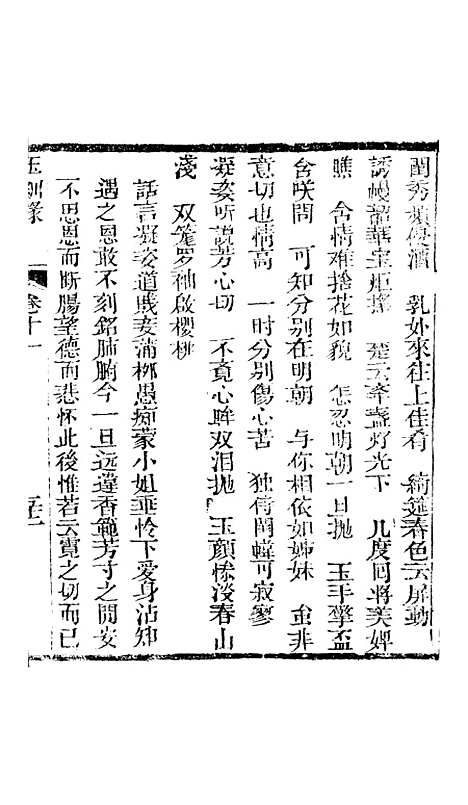 閨秀類優酒　乳妳來往上佳肴　綺筵春色云屏動
誘幌韶華宝炬搖　楚云牽盞灯光下　几度回將美婢
瞧　含情难捨花如貌　怎忍明朝一旦拋　玉手擎盃
含咲問　可知分别在明朝　与你相依如姊妹　虽非
意切也情高　一时分别傷心苦　独倚閨幃可寂寥
凝姿听說芳心切　不竟心眸双泪拋　玉顏惨淡春山
淺　双笼罗袖啟櫻桃
話言凝姿道賎妾蒲桞愚痴蒙小姐垂怜下爱身沾知
遇之恩敢不刻銘肺腑今一旦远違香範芳寸之間安
不思恩而断腸望德而悲怀此後惟若云霓之切而已
玉釧緣
卷十一